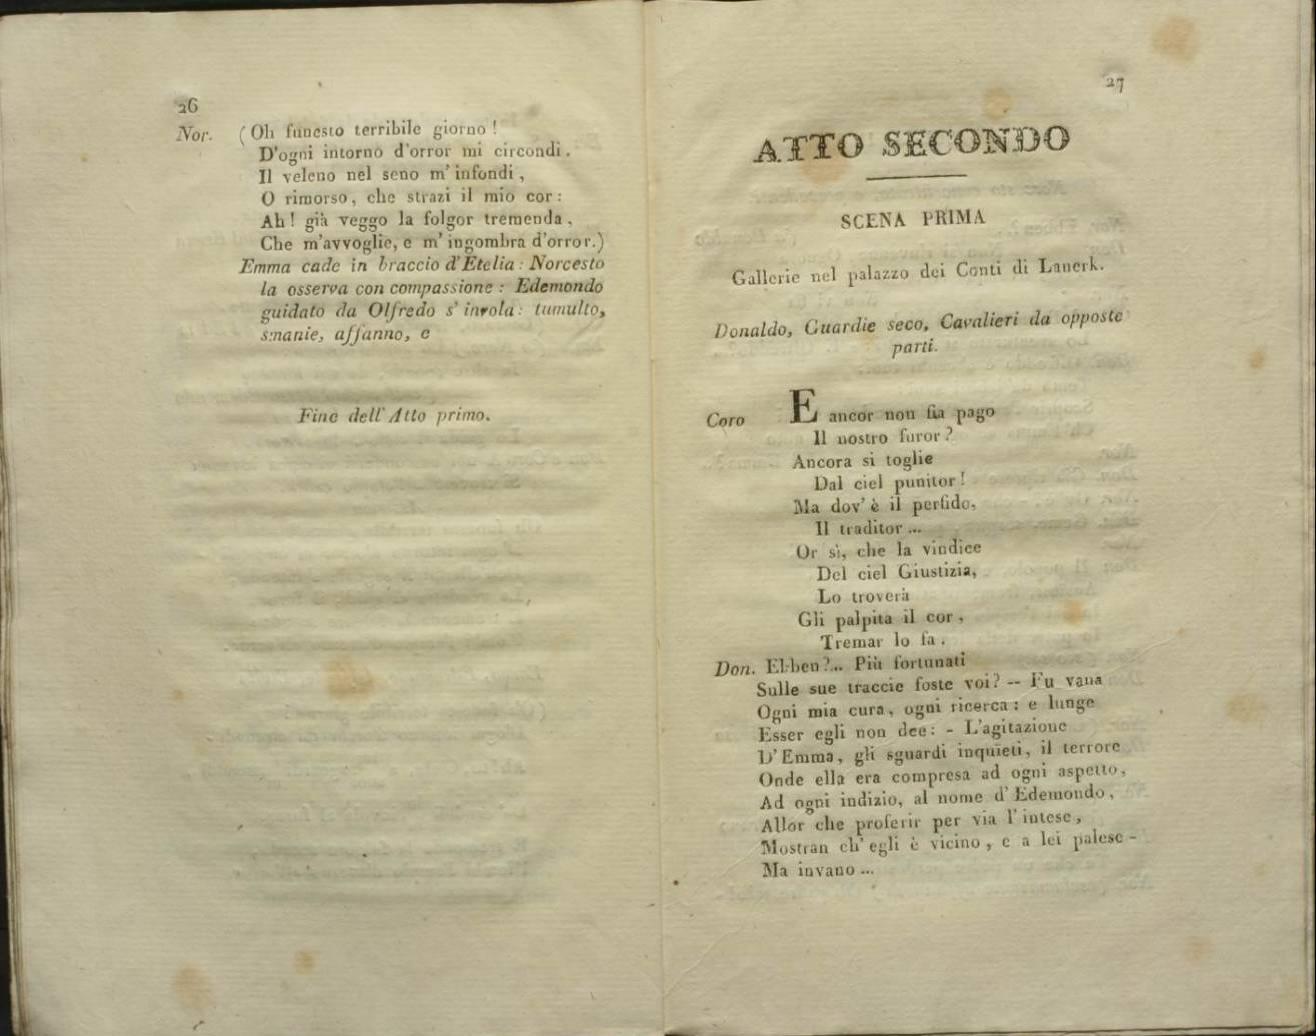 26
Nor. (Oh funesto terribile giorno!
D'ogni intorno d'orror mi circondi.
Il veleno nel seno m'infondi,
O rimorso, che strazi il mio cor:
Ah! già veggo la folgor tremenda,
Che m'avvoglie, e m'ingombra d'orror.)
Emma cade in braccio d'Etelia: Norcesto
la osserva con compassione: Edemondo
guidato da Olfredo s'invola: tumulto,
smanie, affanno, e
Fine dell'Atto primo.
27
ATTO SECONDO
SCENA PRIMA
Gallerie nel palazzo dei Conti di Lanerk.
Donaldo, Guardie seco, Cavalieri da opposte
parti.
Coro E ancor non fia pago
Il nostro furor?
Ancora si toglie
Dal ciel punitor!
Ma dov'è il perfido,
Il traditor...
Or sì, che la vindice
Del ciel Giustizia,
Lo troverà
Gli palpita il cor,
Tremar lo fa.
Don. Ebben?... Più fortunati
Sulle sue traccie foste voi? -- Fu vana
Ogni mia cura, ogni ricerca: e lunge
Esser egli non dee: - L'agitazione
D'Emma, gli sguardi inquieti, il terrore
Onde ella era compresa ad ogni aspetto,
Ad ogni indizio, al nome d'Edemondo,
Allor che proferir per via l'intese,
Mostran ch'egli è vicino, e a lei palese -
Ma invano...